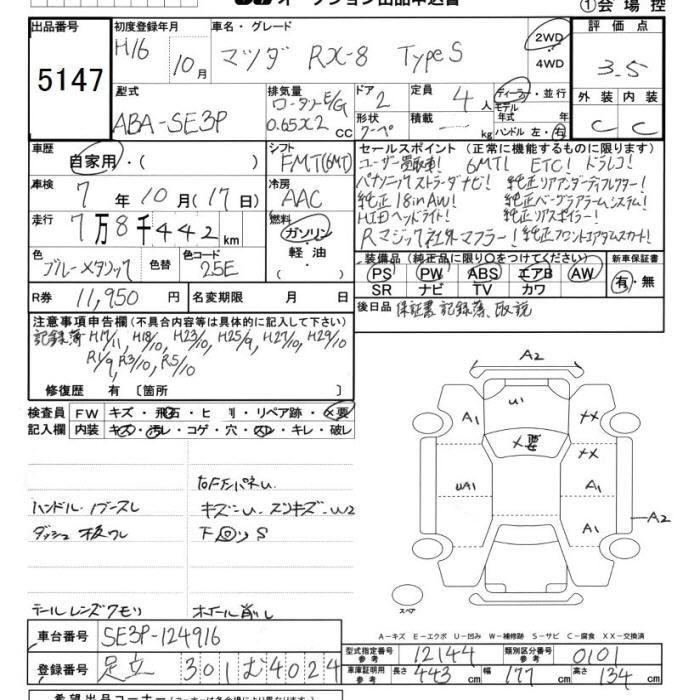 オークション出品申込書
①会場控
出品番号 5147
初度登録年月 H16 10月
車名・グレード マツダ RX-8 TypeS
2WD・4WD
評価点 3.5
外装 C 内装 C
型式 ABA-SE3P
排気量 ロータリーE/G 0.65X2 CC
ドア 2
形状 クーペ
定員 4人
積載 — kg
ディーラー・並行
モデル年式 年式
ハンドル 左・右
車歴 自家用・( )
シフト FMT(6MT)
車検 7年10月(17日)
冷房 AAC
走行 7万8千442km
燃料 ガソリン・軽油( )
色 ブルーメタリック 色替 色コード 25E
R券 11,950円 名変期限 月 日
セールスポイント (正常に機能するものに限ります)
ユーザー買取車! 6MT! ETC! ドラレコ!
パナソニックストラーダナビ! 純正リアアンダーディフレクター!
純正18inAW! 純正バーグラアラームシステム!
HIDヘッドライト! 純正リアスポイラー!
Rマジック社外マフラー! 純正フロントエアダムスカート!
装備品 (純正品に限り○をつけてください)
PS PW ABS エアB AW
SR ナビ TV カワ
新車保証書 有・無
後日品 保証書、記録簿、取説
注意事項申告欄 (不具合内容等は具体的に記入して下さい)
記録簿 H17/11, H18/10, H23/10, H25/9, H27/10, H29/10
R1/9, R3/10, R5/10
修復歴 有 〔箇所 〕
検査員記入欄
FW キズ・飛石・ヒ リ・リペア跡・×要
内装 キズ・汚レ・コゲ・穴・スレ・キレ・破レ
右Fドパネu
ハンドル・ノブースレ キズ=u.スンキズ=w2
ダッシュ板ワレ 下回りS
テールレンズクモリ ホイール削レ
A2
u1
A1
XX
×要
XX
uA1
A1
A1
A2
スペア
A-キズ E-エクボ U-凹み W-補修跡 S-サビ C-腐食 XX-交換済
車台番号 SE3P-124916
登録番号 足立 301 む 4024
型式指定番号 参考 12144 類別区分番号 参考 0101
車庫証明用 参考 長さ 443cm 幅 177cm 高さ 134cm
希望出品コーナー